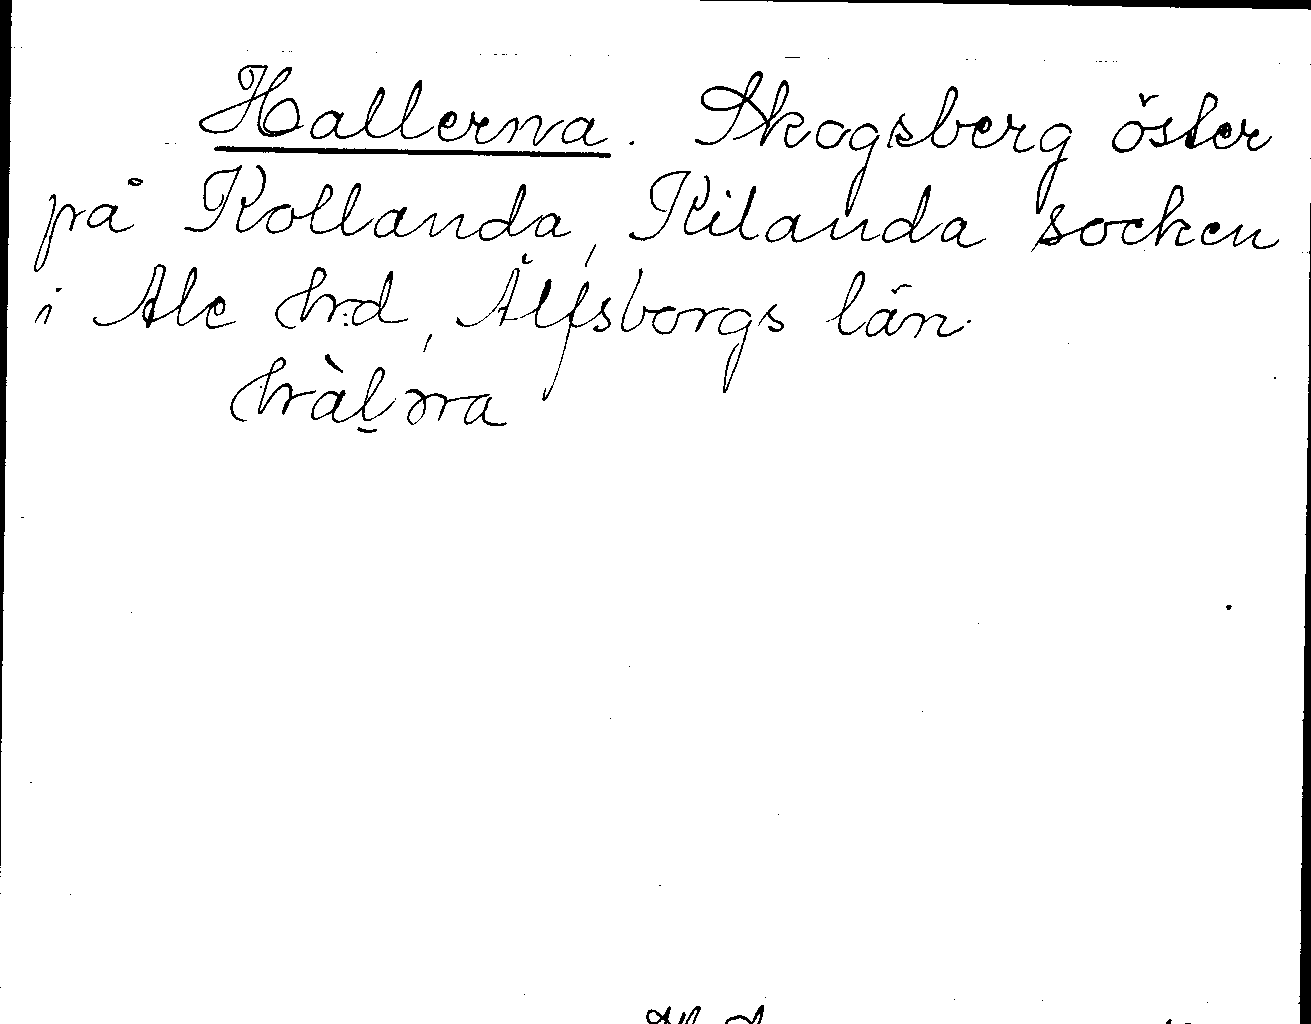 Hallerna. Skogsberg öster
på Kollanda, Kilanda socken
i Ale hrd, Älfsborgs län.